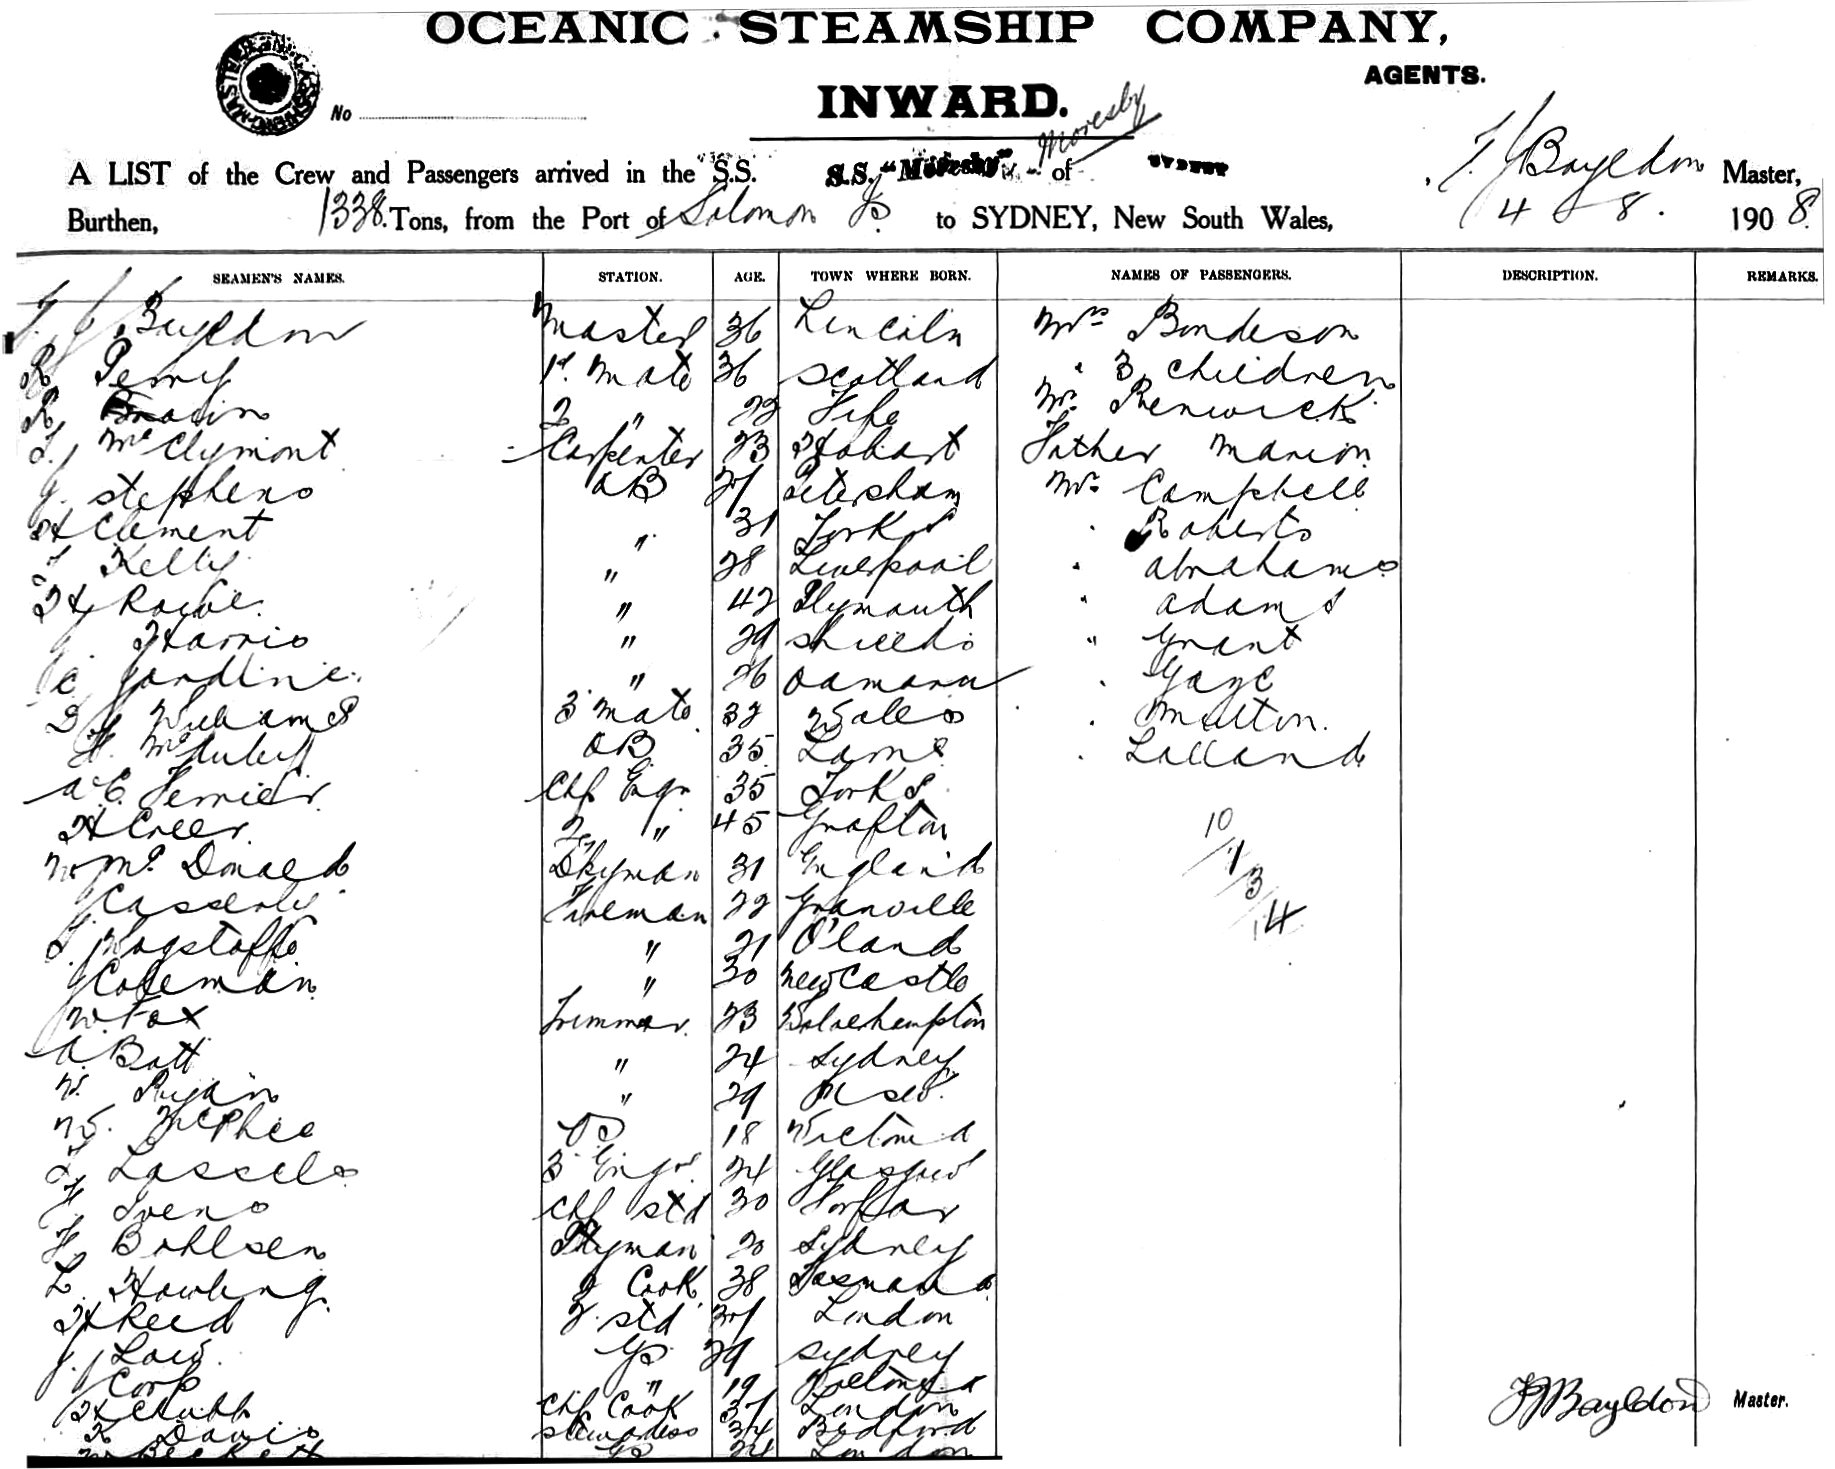 OCEANIC STEAMSHIP COMPANY,
AGENTS.
INWARD.
No
Moresby
A LIST of the Crew and Passengers arrived in the S.S. S.S. "Moresby" of SYDNEY Bayldon Master,
Burthen, 1338 Tons, from the Port of Solomon Is to SYDNEY, New South Wales, 4 8 1908.
SEAMEN'S NAMES. STATION. AGE. TOWN WHERE BORN. NAMES OF PASSENGERS. DESCRIPTION. REMARKS.
Bayldon Master 36 Lincoln Mrs Bondeson
R Perry 1st Mate 36 Scotland " 3 children
R 2 " Fife Mr Renwick
McClymont Carpenter 23 Hobart Father Marion
J. Stephens AB Petersham Mr Campbell
H Clement " 31 Yorks " Roberts
Kelly " 28 Liverpool " Abrahams
Rowe " 42 Plymouth " Adams
J Harris " 29 Shields " Grant
C Jardine " 26 Oamaru "
Williams 3 Mate 32 Wales "
AB 35 " Lalland
A.E. Ferrier Chf Engr 35 Yorks
H Creer 2 " 45 Grafton
10/1/3/14
W McDonald Dkyman 31 England
J Casserly Fireman 22 Granville
Wagstaffe " 21 Q'land
J Coleman " 30 Newcastle
W. Fox Trimmer 23 Wolverhampton
A. Bott " 24 Sydney
W. Ryan " 29
W. McPhee OS 18 Victoria
Lassels 3 Engr 24 Glasgow
Ivens Chf Std 30 Forfar
H Bohlsen 20 Sydney
L. Howling 2 Cook 38 Tasmania
H Reed 2 Std London
J. J Low GS 29 Sydney
J Corp " 19 Victoria
H Chubb Chf Cook London
K Davis Stewardess 34 Bedford
W Beckett GS 24 London
Bayldon Master.